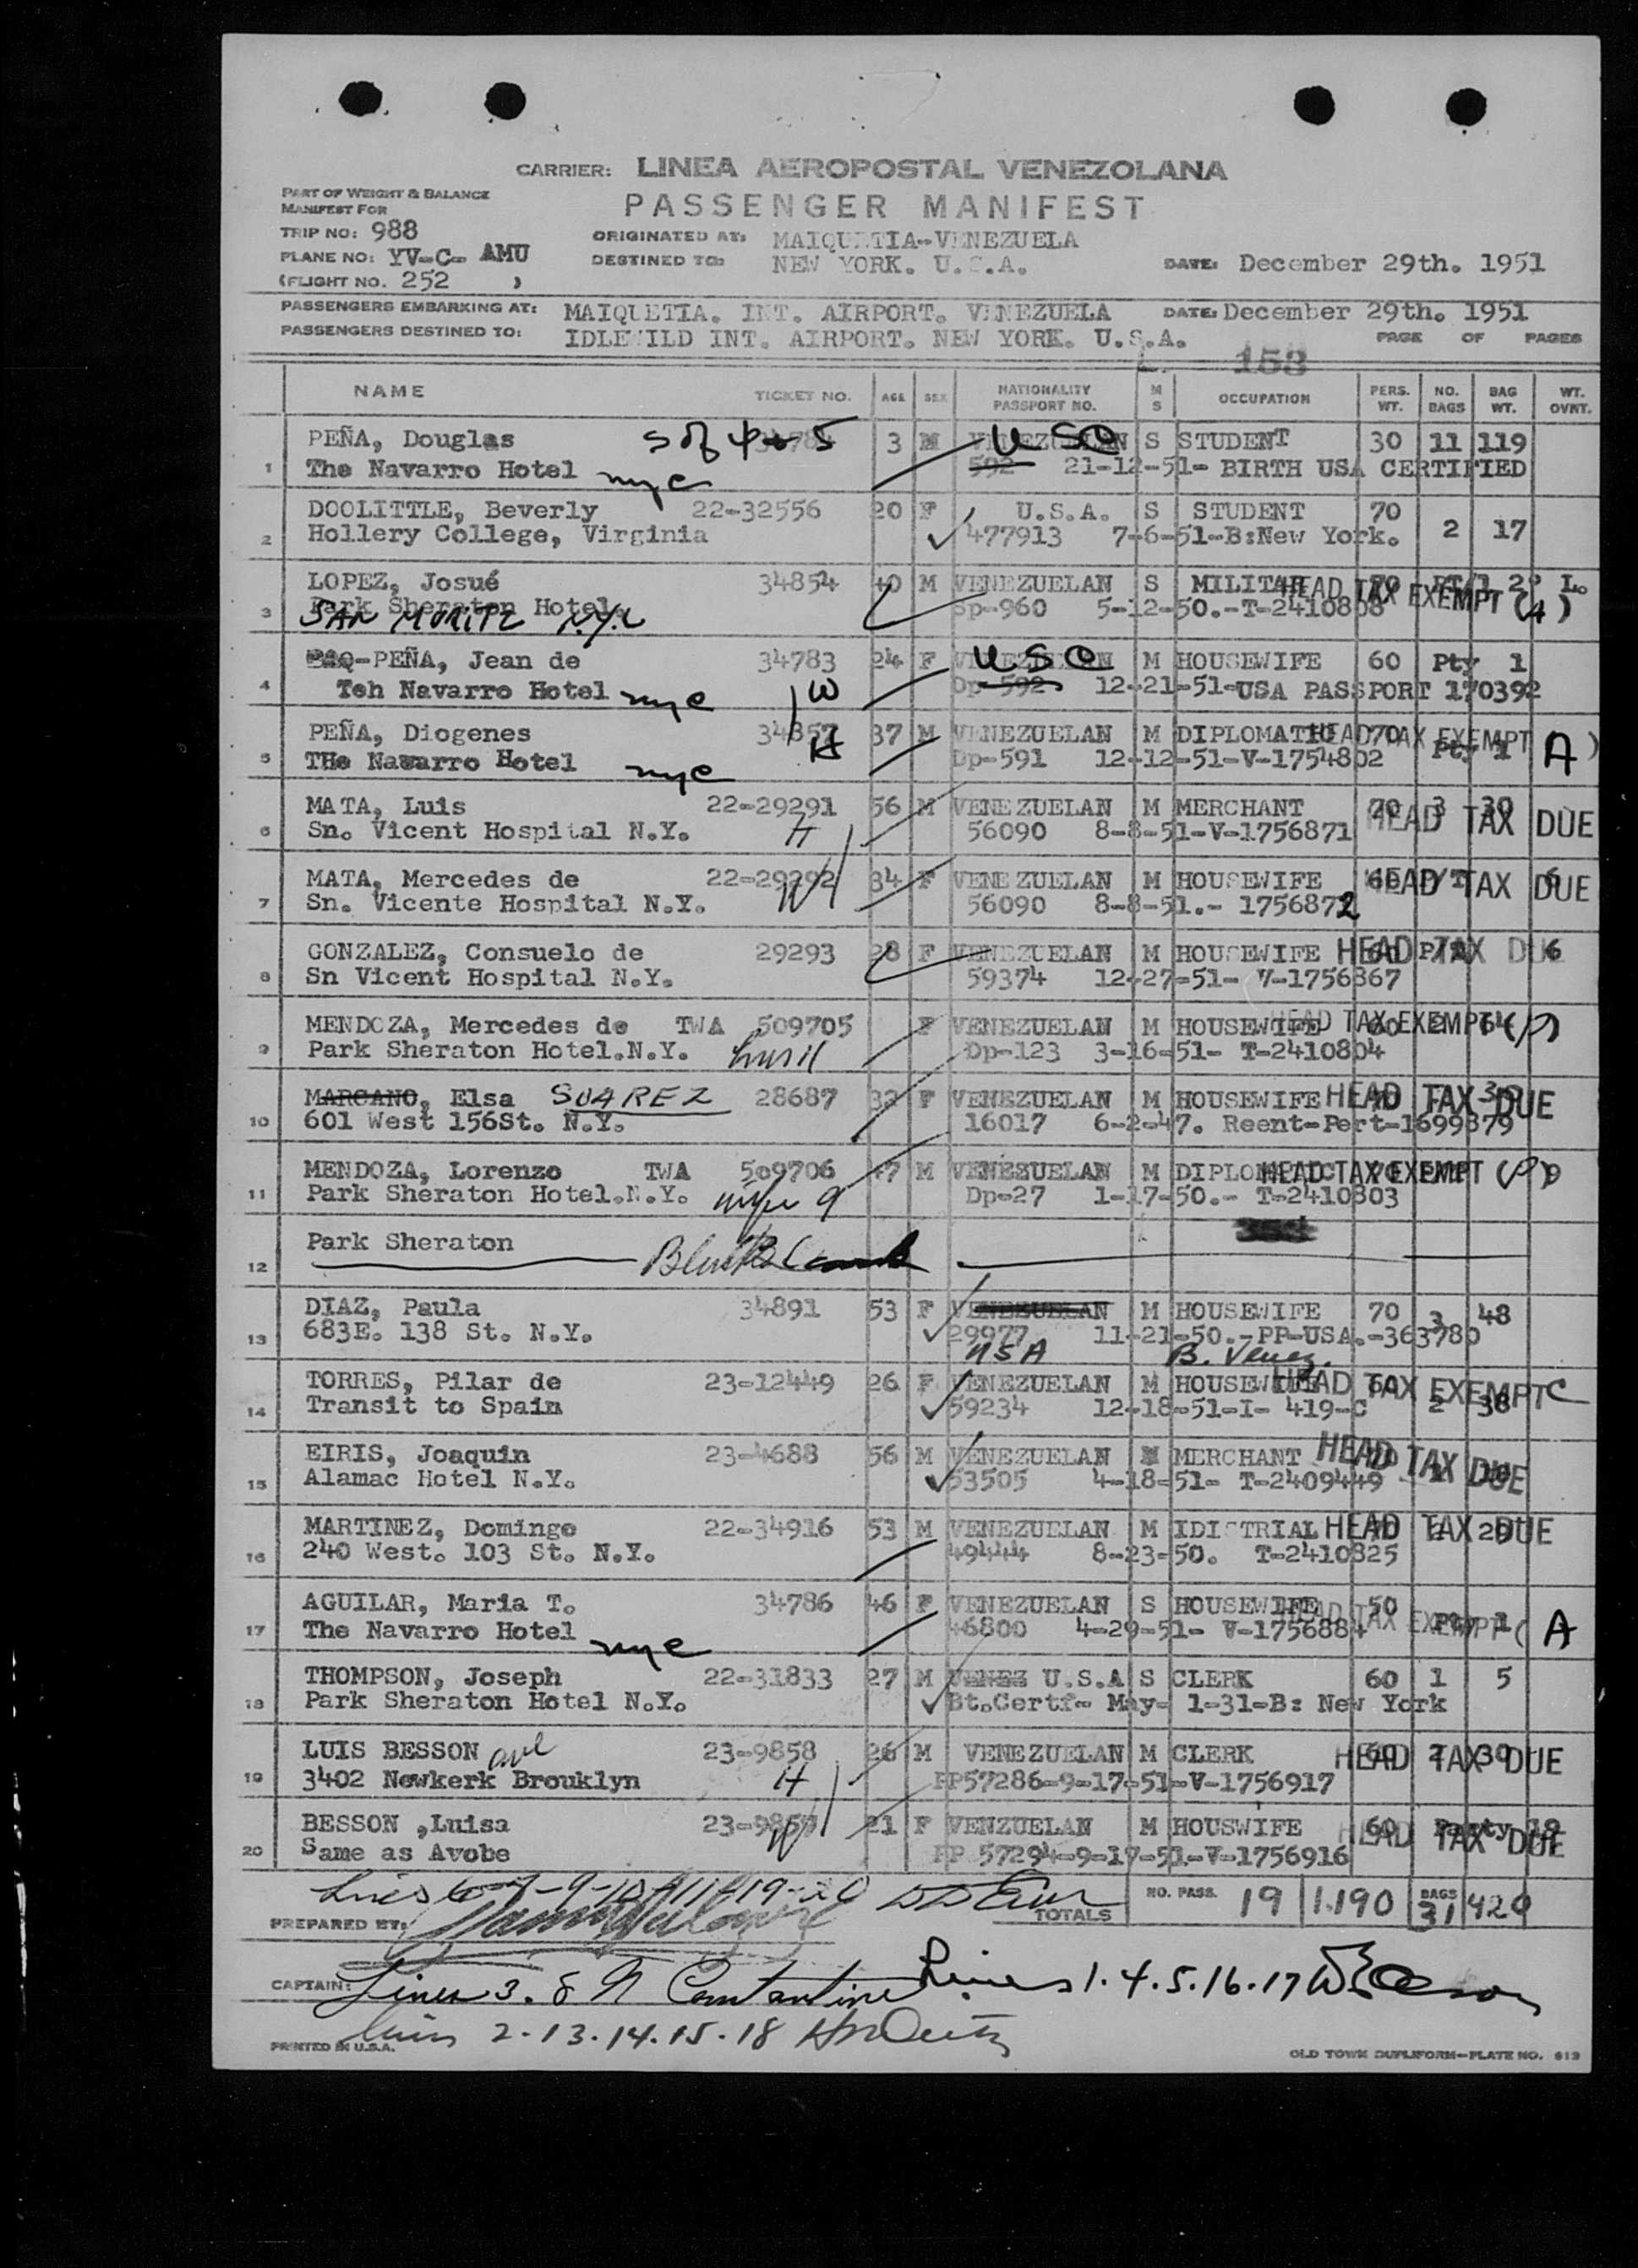 CARRIER: LINEA AEROPOSTAL VENEZOLANA
PASSENGER MANIFEST
PART OF WEIGHT & BALANCE
MANIFEST FOR
TRIP NO: 988
PLANE NO: YV-C- AMU
(FLIGHT NO. 252 )
ORIGINATED AT: MAIQUETIA-VENEZUELA
DESTINED TO: NEW YORK. U.S.A.
DATE: December 29th. 1951
PASSENGERS EMBARKING AT: MAIQUETIA. INT. AIRPORT. VENEZUELA DATE: December 29th. 1951
PASSENGERS DESTINED TO: IDLEWILD INT. AIRPORT. NEW YORK. U.S.A. PAGE OF PAGES
153
NAME TICKET NO. AGE SEX NATIONALITY PASSPORT NO. M S OCCUPATION PERS. WT. NO. BAGS BAG WT. WT. OVNT.
PEÑA, Douglas S of 4 + 5 3 M VENEZUELAN USC S STUDENT 30 11 119
1 The Navarro Hotel nyc 592 21-12-51- BIRTH USA CERTIFIED
DOOLITTLE, Beverly 22-32556 20 F U.S.A. S STUDENT 70
2 Hollery College, Virginia 477913 7-6-51-B:New York. 2 17
LOPEZ, Josué 34854 40 M VENEZUELAN S MILITAR HEAD TAX EXEMPT (A)
3 Park Sheraton Hotel SAN MORITZ N.Y.C Sp-960 5-12-50.-T-2410808
-PEÑA, Jean de 34783 24 F VENEZUELAN USC M HOUSEWIFE 60 Pty 1
4 Teh Navarro Hotel nyc W Dp-592 12-21-51-USA PASSPORT 170392
PEÑA, Diogenes 34857 37 M VENEZUELAN M DIPLOMATIC 70 HEAD TAX EXEMPT (A)
5 THe Navarro Hotel nyc H Dp-591 12-12-51-V-1754802 Pty 1
MATA, Luis 22-29291 56 M VENEZUELAN M MERCHANT 70 3 30 HEAD TAX DUE
6 Sn. Vicent Hospital N.Y. H 56090 8-8-51-V-1756871
MATA, Mercedes de 22-29292 34 F VENEZUELAN M HOUSEWIFE HEAD TAX DUE
7 Sn. Vicente Hospital N.Y. W 56090 8-8-51.- 1756872
GONZALEZ, Consuelo de 29293 28 F VENEZUELAN M HOUSEWIFE 60 HEAD TAX DUE 6
8 Sn Vicent Hospital N.Y. 59374 12-27-51- V-1756867
MENDOZA, Mercedes de TWA 509705 F VENEZUELAN M HOUSEWIFE 60 HEAD TAX EXEMPT
9 Park Sheraton Hotel.N.Y. Dp-123 3-16-51- T-2410804
MARCANO, Elsa SUAREZ 28687 32 F VENEZUELAN M HOUSEWIFE HEAD TAX DUE
10 601 West 156St. N.Y. 16017 6-2-47. Reent-Pert-1699879
MENDOZA, Lorenzo TWA 509706 47 M VENESUELAN M DIPLOMATIC HEAD TAX EXEMPT
11 Park Sheraton Hotel.N.Y. wife 9 Dp-27 1-17-50.- T-2410803
Park Sheraton
12
DIAZ, Paula 34891 53 F VENEZUELAN M HOUSEWIFE 70 3 48
13 683E. 138 St. N.Y. 29977 11-21-50.-PP-USA.-363780
USA B. Venez.
TORRES, Pilar de 23-12449 26 F VENEZUELAN M HOUSEWIFE 60 HEAD TAX EXEMPT C
14 Transit to Spain 59234 12-18-51-I- 419-C 2 38
EIRIS, Joaquin 23-4688 56 M VENEZUELAN M MERCHANT HEAD TAX DUE
15 Alamac Hotel N.Y. 53505 4-18-51- T-2409449
MARTINEZ, Domingo 22-34916 53 M VENEZUELAN M IDISTRIAL HEAD TAX DUE
16 240 West. 103 St. N.Y. 49444 8-23-50. T-2410825
AGUILAR, Maria T. 34786 46 F VENEZUELAN S HOUSEWIFE 50 HEAD TAX EXEMPT (A
17 The Navarro Hotel nyc 46800 4-29-51- V-1756884 Pty 1
THOMPSON, Joseph 22-31833 27 M VENEZ U.S.A S CLERK 60 1 5
18 Park Sheraton Hotel N.Y. Bt.Certf- May- 1-31-B: New York
LUIS BESSON ave 23-9858 26 M VENEZUELAN M CLERK 60 2 30 HEAD TAX DUE
19 3402 Newkerk Brouklyn H PP57286-9-17-51-V-1756917
BESSON ,Luisa 23-9859 21 F VENZUELAN M HOUSWIFE 60 Party 19 HEAD TAX DUE
20 Same as Avobe W PP 57294-9-17-51-V-1756916
Lines 6-7-9-10-11-19-20
TOTALS NO. PASS. 19 1.190 BAGS 31 420
PREPARED BY:
CAPTAIN: Lines 3. 8 Lines 1.4.5.16.17
Lines 2-13.14.15.18
PRINTED IN U.S.A. OLD TOWN DUPLIFORM-PLATE NO. 613